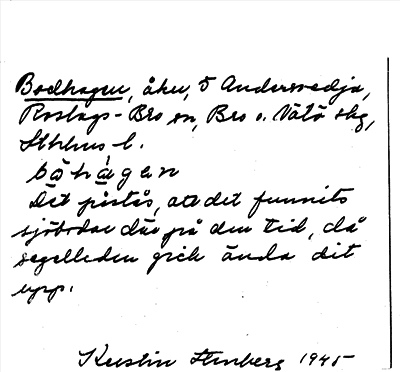 Bodhagen, åker, 5 Andersvedja,
Roslags-Bro sn, Bro o. Vätö skg,
Sthlms l.
bòhágan
Det påstås, att det funnits
sjöbodar där på den tid, då
segelleden gick ända dit
upp.
Kerstin Stenberg 1945